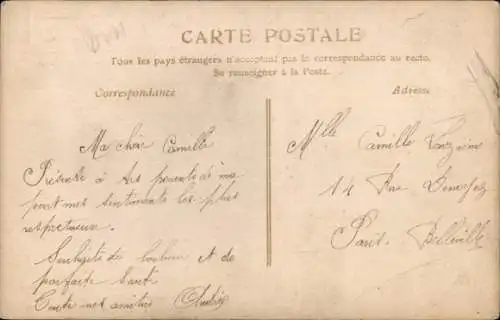 CARTE POSTALE
Tous les pays étrangers n'acceptent pas la correspondance au recto.
Se renseigner à la Poste.
Correspondance
Adresse
Ma chère Camille
Présente à tes parents de ma
part mes sentiments les plus
respectueux.
Souhaits de bonheur et de
parfaite santé
mes amitiés
Mlle Camille
14 Rue
Paris. Belleville